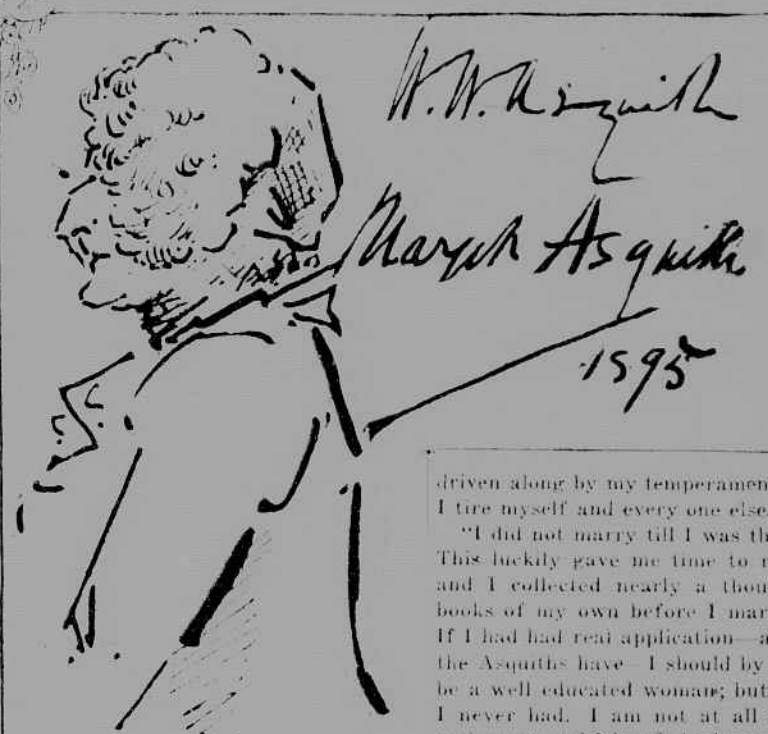 H. H. Asquith
Margot Asquith
1895
driven along by my temperamen
I tire myself and every one else
"I did not marry till I was th
This luckily gave me time to r
and I collected nearly a thou
books of my own before I mar
If I had had real application—a
the Asquiths have—I should by
be a well educated woman; but
I never had. I am not at all